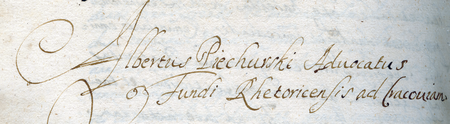 Albertus Piechurski Advocatus
Fundi Rhetoricensis ad Cracoviam